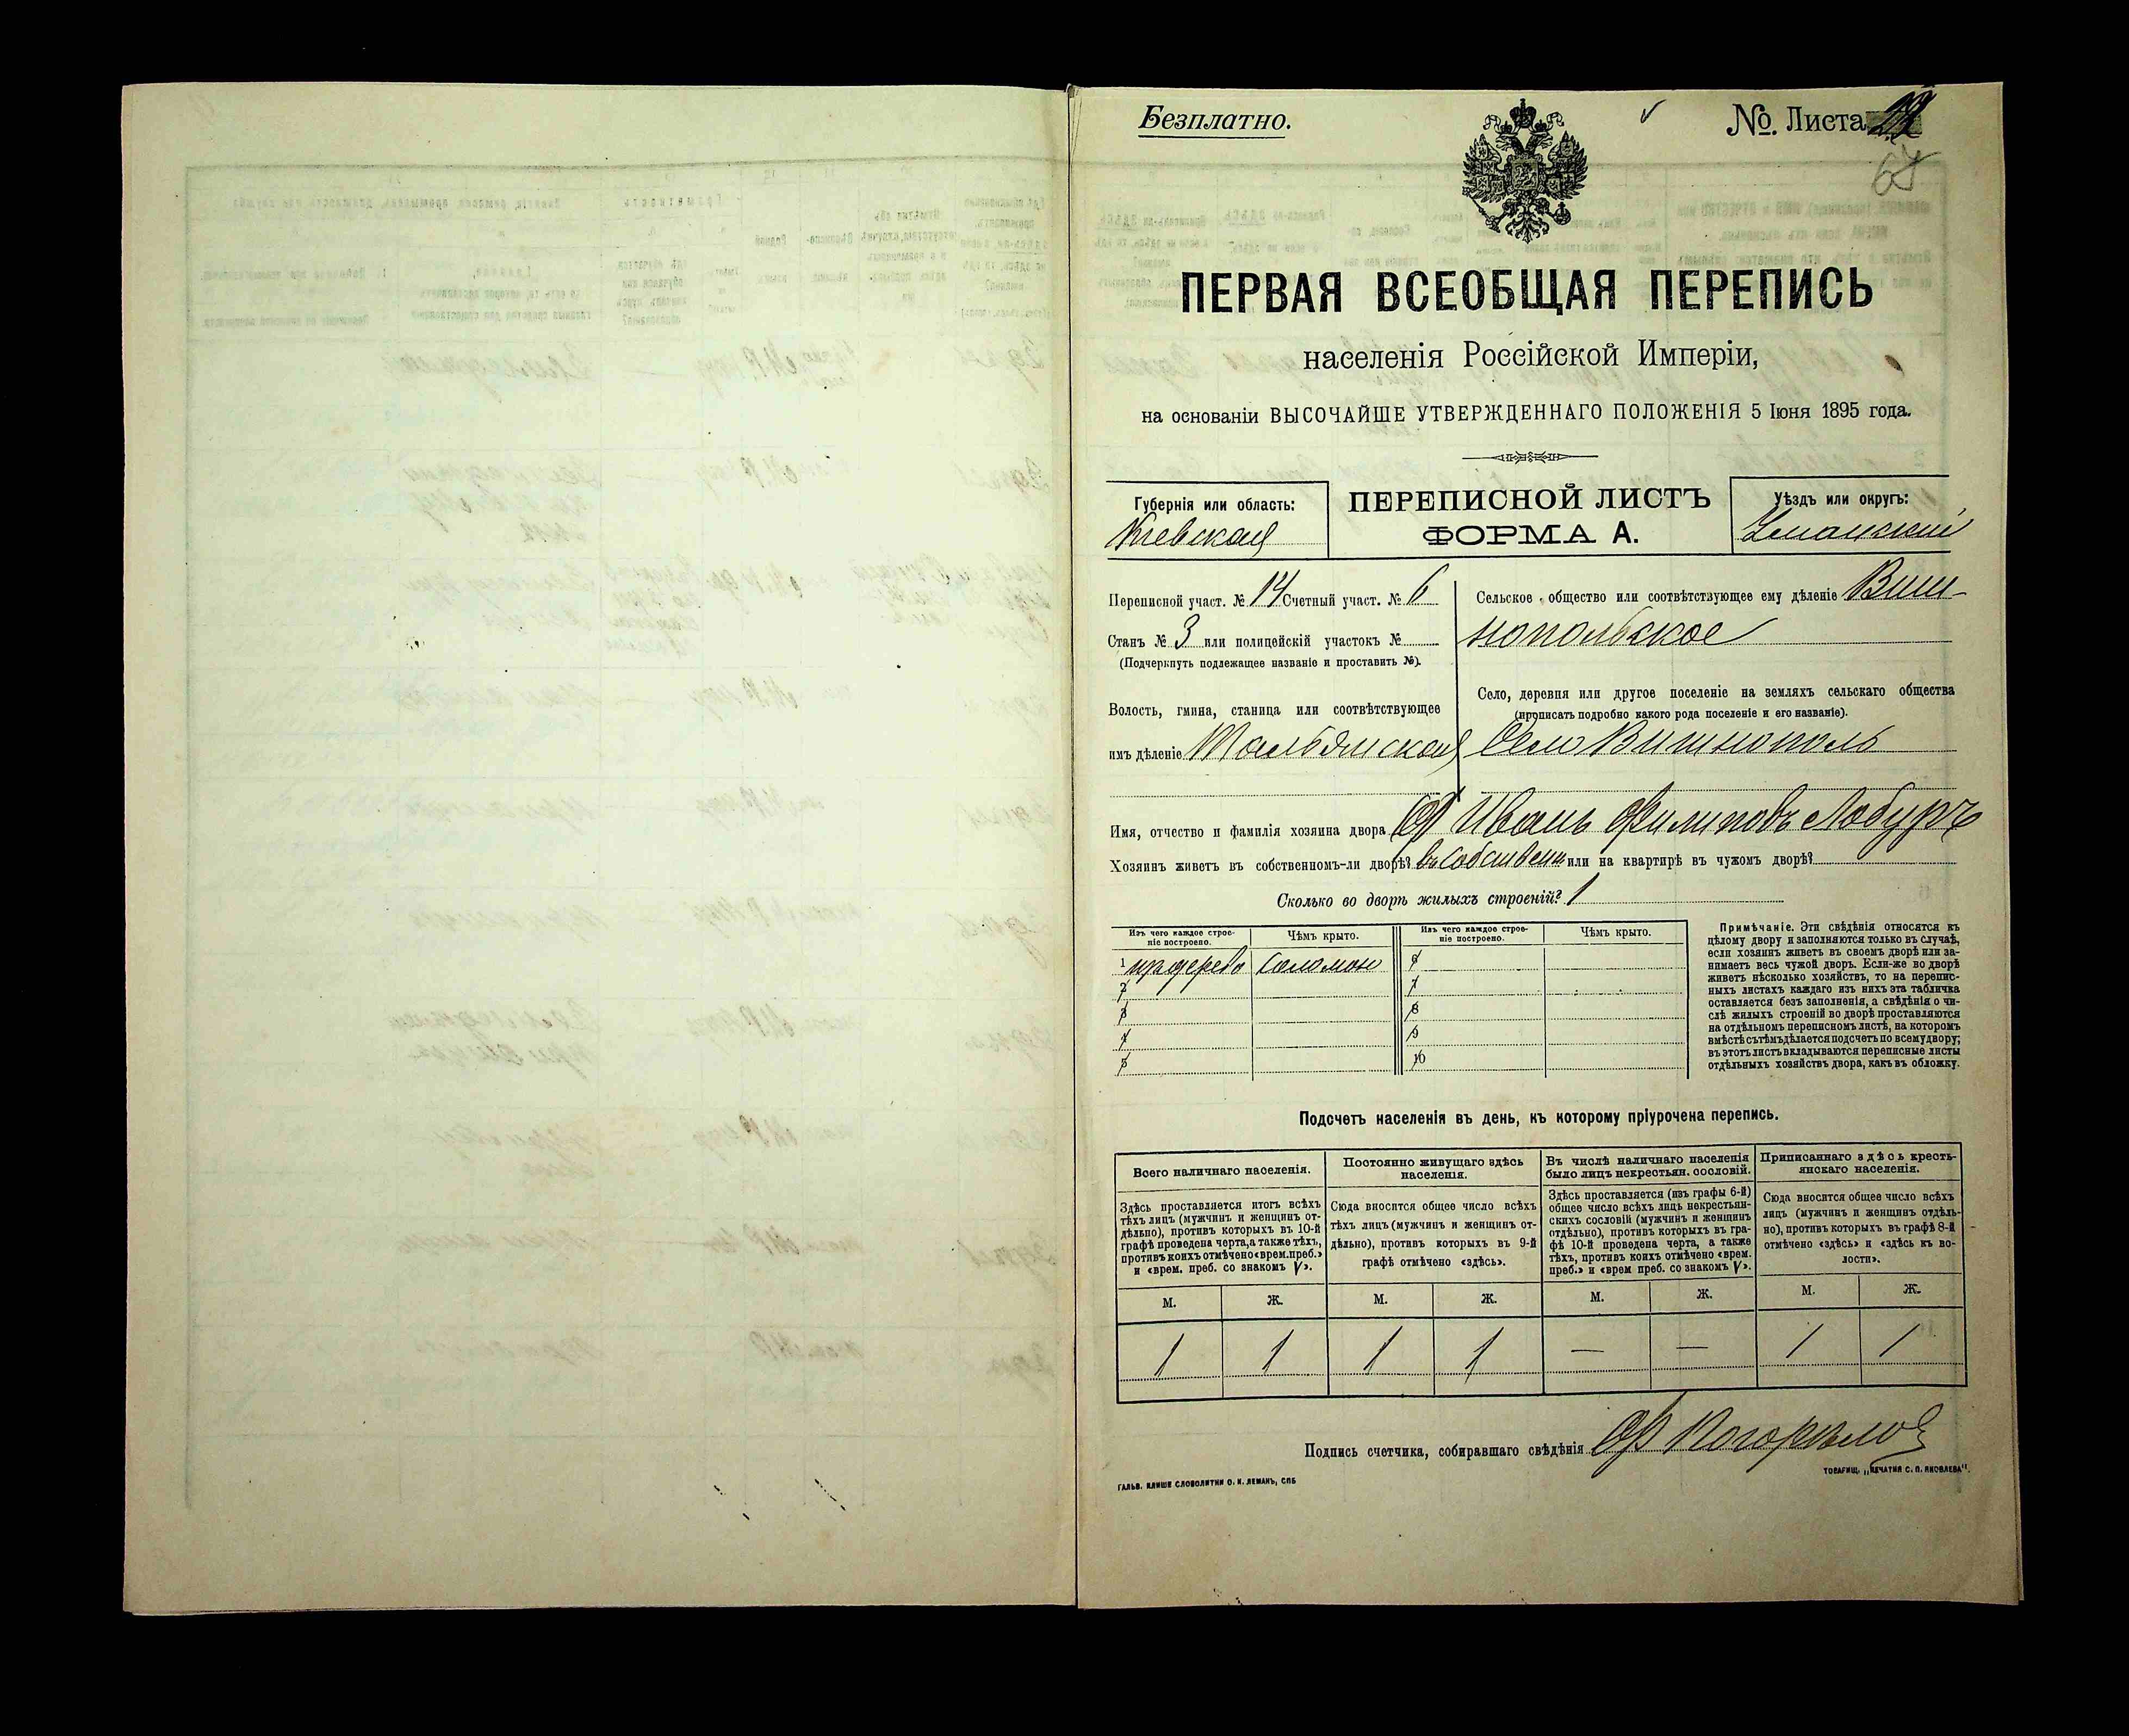 Безплатно.
№. Листа
ПЕРВАЯ ВСЕОБЩАЯ ПЕРЕПИСЬ
населенія Россійской Имперіи,
на основаніи ВЫСОЧАЙШЕ УТВЕРЖДЕННАГО ПОЛОЖЕНІЯ 5 Іюня 1895 года.
Губернія или область:
Кіевская
ПЕРЕПИСНОЙ ЛИСТЪ
ФОРМА А.
Уѣздъ или округъ:
Уманскій
Переписной участ. № 14 Счетный участ. № 6
Станъ № 3 или полицейскій участокъ №
(Подчеркнуть подлежащее названіе и проставить №).
Волость, гмина, станица или соотвѣтствующее
имъ дѣленіе Тальянская
Сельское общество или соотвѣтствующее ему дѣленіе Виш-
нопольское
Село, деревня или другое поселеніе на земляхъ сельскаго общества
(прописать подробно какого рода поселеніе и его названіе).
Село Вишнополь
Имя, отчество и фамилія хозяина двора Иванъ Филиповъ
Хозяинъ живетъ въ собственномъ-ли дворѣ? въ собствен или на квартирѣ въ чужомъ дворѣ?
Сколько во дворѣ жилыхъ строеній? 1
Изъ чего каждое строе-
ніе построено.
Чѣмъ крыто.
Изъ чего каждое строе-
ніе построено.
Чѣмъ крыто.
1 соломою
2
3
4
5
6
7
8
9
10
Примѣчаніе. Эти свѣдѣнія относятся къ
цѣлому двору и заполняются только въ случаѣ,
если хозяинъ живетъ въ своемъ дворѣ или за-
нимаетъ весь чужой дворъ. Если-же во дворѣ
живетъ нѣсколько хозяйствъ, то на перепис-
ныхъ листахъ каждаго изъ нихъ эта табличка
оставляется безъ заполненія, а свѣдѣнія о чи-
слѣ жилыхъ строеній во дворѣ проставляются
на отдѣльномъ переписномъ листѣ, на которомъ
вмѣстѣ съ тѣмъ дѣлается подсчетъ по всему двору;
въ этотъ листъ вкладываются переписные листы
отдѣльныхъ хозяйствъ двора, какъ въ обложку.
Подсчетъ населенія въ день, къ которому пріурочена перепись.
Всего наличнаго населенія.
Здѣсь проставляется итогъ всѣхъ
тѣхъ лицъ (мужчинъ и женщинъ от-
дѣльно), противъ которыхъ въ 10-й
графѣ проведена черта, а также тѣхъ,
противъ коихъ отмѣчено «врем. преб.»
и «врем. преб. со знакомъ V».
Постоянно живущаго здѣсь
населенія.
Сюда вносится общее число всѣхъ
тѣхъ лицъ (мужчинъ и женщинъ от-
дѣльно), противъ которыхъ въ 9-й
графѣ отмѣчено «здѣсь».
Въ числѣ наличнаго населенія
было лицъ некрестьян. сословій.
Здѣсь проставляется (изъ графы 6-й)
общее число всѣхъ лицъ некрестьян-
скихъ сословій (мужчинъ и женщинъ
отдѣльно), противъ которыхъ въ гра-
фѣ 10-й проведена черта, а также
тѣхъ, противъ коихъ отмѣчено «врем.
преб.» и «врем преб. со знакомъ V».
Приписаннаго здѣсь кресть-
янскаго населенія.
Сюда вносится общее число всѣхъ
лицъ (мужчинъ и женщинъ отдѣль-
но), противъ которыхъ въ графѣ 8-й
отмѣчено «здѣсь» и «здѣсь къ во-
лости».
М. Ж. М. Ж. М. Ж. М. Ж.
1 1 1 1 — — 1 1
Подпись счетчика, собиравшаго свѣдѣнія
ГАЛЬВ. КЛИШЕ СЛОВОЛИТНИ О. И. ЛЕМАНЪ, СПБ
ТОВАРИЩ. „ПЕЧАТНЯ С. П. ЯКОВЛЕВА".